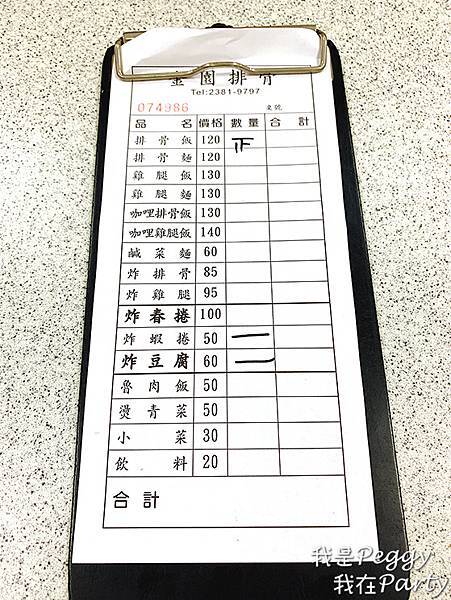 金園排骨
Tel:2381-9797
074986 桌號
品名 價格 數量 合計
排骨飯 120 正
排骨麵 120
雞腿飯 130
雞腿麵 130
咖哩排骨飯 130
咖哩雞腿飯 140
鹹菜麵 60
炸排骨 85
炸雞腿 95
炸春捲 100
炸蝦捲 50 一
炸豆腐 60 一
魯肉飯 50
燙青菜 50
小菜 30
飲料 20
合計
我是Peggy
我在Party